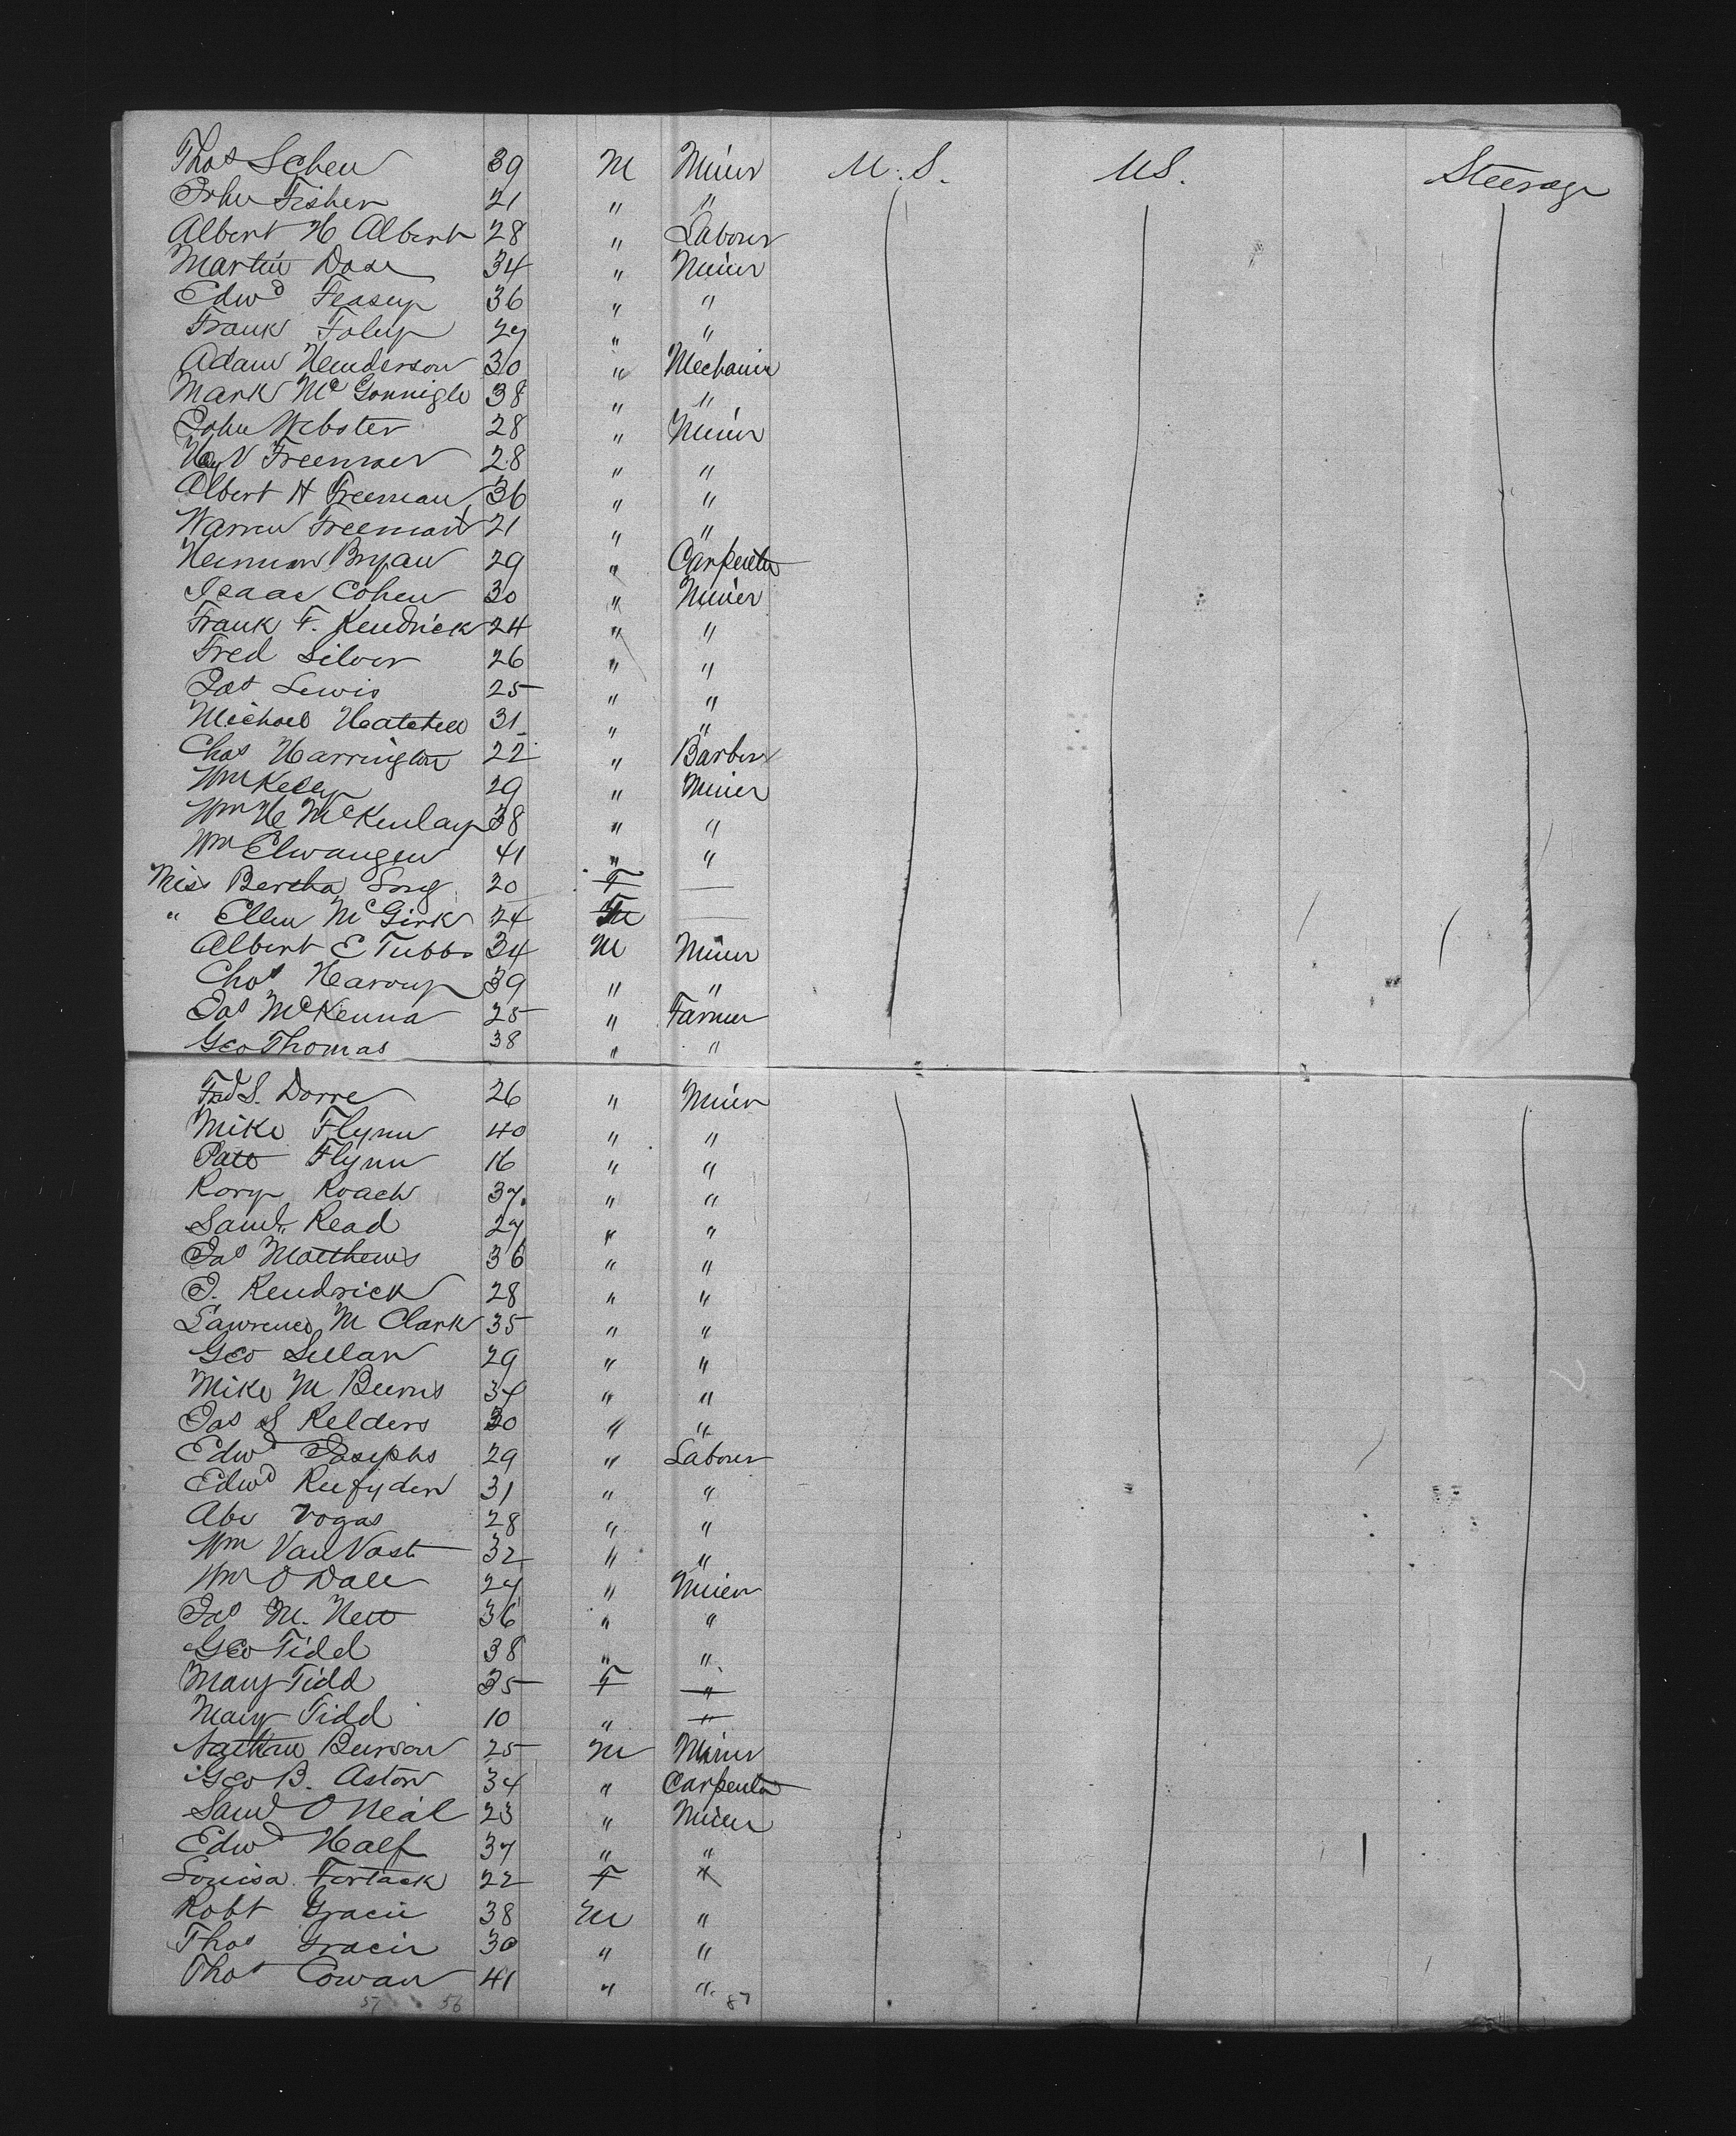 Thos Scheu 39 M Miner U.S. US. Steerage
John Fisher 21 " "
Albert H Albert 28 " Labour
Martin Dase 34 " Miner
Edwd Feasey 36 " "
Frank Foley 27 " "
Adam Henderson 30 " Mechanic
Mark McGonnigle 38 " "
John Webster 28 " Miner
Hy V Freeman 28 " "
Albert H Freeman 36 " "
Warren Freeman 21 " "
Herman Bryan 29 " Carpenter
Isaac Cohen 30 " Miner
Frank F. Kendrick 24 " "
Fred Silver 26 " "
Jas Lewis 25 " "
Michael 31 " "
Chas Harrington 22 " Barber
Wm Kelly 29 " Miner
Wm H McKenlay 38 " "
Wm Elwangen 41 " "
Miss Bertha Long 20 F —
" Ellen McGirk 24 F —
Albert E Tubbs 34 M Miner
Chas 39 " "
Jas McKenna 25 " Farmer
Geo Thomas 38 " "
Fred S. Dorre 26 " Miner
Mike Flynn 40 " "
Patk Flynn 16 " "
Rory Roach 37 " "
Saml Read 27 " "
Jas Matthews 36 " "
J. Kendrick 28 " "
Lawrence M Clark 35 " "
Geo 29 " "
Mike M Burns 34 " "
Jas S Kelders 30 " "
Edwd Josephs 29 " Labour
Edwd 31 " "
Abe Vogas 28 " "
Wm Van Vast 32 " "
Wm O Dall 27 " Miner
Jas M. 36 " "
Geo Tidd 38 " "
Mary Tidd 35 F "
Mary Tidd 10 " "
Nathan 25 M Miner
Geo B. Aston 34 " Carpenter
Saml O Neal 23 " Miner
Edwd Half 37 " "
Louisa Fortack 22 F "
Robt Gracie 38 M "
Thos Gracie 30 " "
Thos Cowan 41 " "
57 56 87